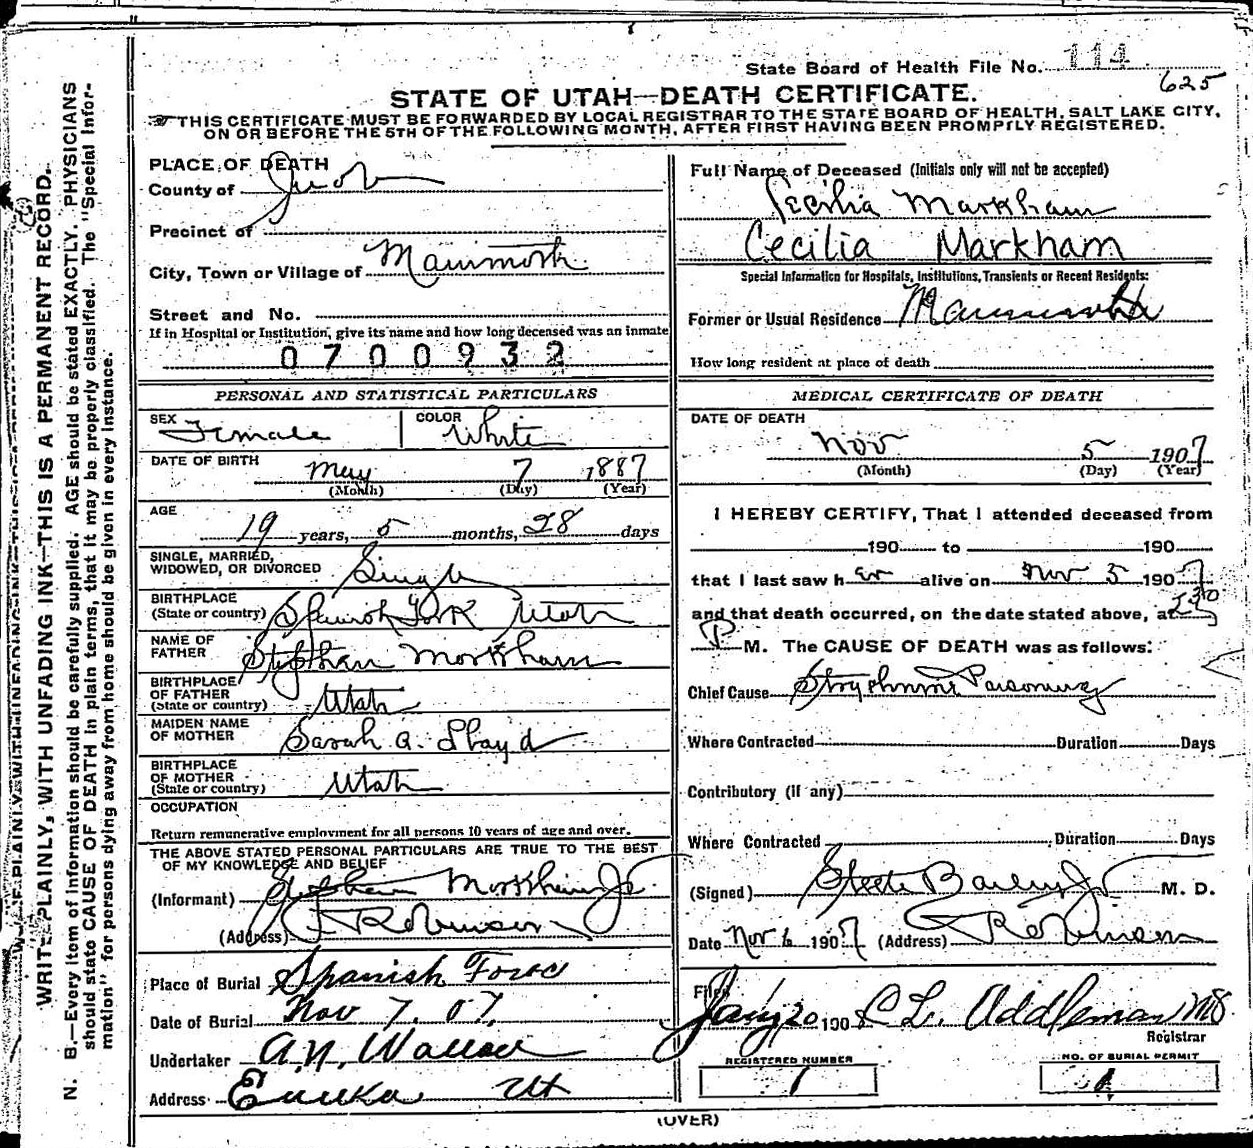 State Board of Health File No. 114
625
STATE OF UTAH—DEATH CERTIFICATE.
THIS CERTIFICATE MUST BE FORWARDED BY LOCAL REGISTRAR TO THE STATE BOARD OF HEALTH, SALT LAKE CITY,
ON OR BEFORE THE 5TH OF THE FOLLOWING MONTH, AFTER FIRST HAVING BEEN PROMPTLY REGISTERED.
WRITE PLAINLY, WITH UNFADING INK—THIS IS A PERMANENT RECORD.
N. B.—Every item of information should be carefully supplied. AGE should be stated EXACTLY. PHYSICIANS
should state CAUSE OF DEATH in plain terms, that it may be properly classified. The "Special Infor-
mation" for persons dying away from home should be given in every instance.
PLACE OF DEATH
County of Juab
Precinct of
City, Town or Village of Mammoth
Street and No.
If in Hospital or Institution, give its name and how long deceased was an inmate
0700932
PERSONAL AND STATISTICAL PARTICULARS
SEX Female COLOR White
DATE OF BIRTH May 7 1887
(Month) (Day) (Year)
AGE
19 years, 5 months, 28 days
SINGLE, MARRIED,
WIDOWED, OR DIVORCED Single
BIRTHPLACE
(State or country) Spanish Fork Utah
NAME OF
FATHER Stephen Markham
BIRTHPLACE
OF FATHER
(State or country) Utah
MAIDEN NAME
OF MOTHER Sarah A. Lloyd
BIRTHPLACE
OF MOTHER
(State or country) Utah
OCCUPATION
Return remunerative employment for all persons 10 years of age and over.
THE ABOVE STATED PERSONAL PARTICULARS ARE TRUE TO THE BEST
OF MY KNOWLEDGE AND BELIEF
(Informant) Stephen Markham Jr
(Address) Robinson
Place of Burial Spanish Fork
Date of Burial Nov 7. 07.
Undertaker A.N. Wallace
Address Eureka Ut
Full Name of Deceased (Initials only will not be accepted)
Cecilia Markham
Cecilia Markham
Special Information for Hospitals, Institutions, Transients or Recent Residents:
Former or Usual Residence Mammoth
How long resident at place of death
MEDICAL CERTIFICATE OF DEATH
DATE OF DEATH
Nov 5 1907
(Month) (Day) (Year)
I HEREBY CERTIFY, That I attended deceased from
190 to 190
that I last saw her alive on Nov 5 1907
and that death occurred, on the date stated above, at
P M. The CAUSE OF DEATH was as follows:
Chief Cause Strychnine Poisoning
Where Contracted Duration Days
Contributory (if any)
Where Contracted Duration Days
(Signed) Steele Bailey Jr M. D.
Date Nov 6 1907 (Address) Robinson
Filed Jany 20 190 C L. Addleman MD
Registrar
REGISTERED NUMBER
1
NO. OF BURIAL PERMIT
1
(OVER)